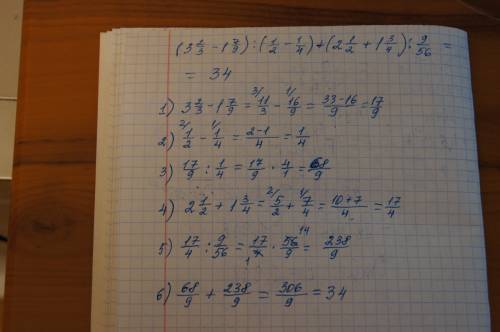 (3 2/3 - 1 7/9) : (1/2 - 1/4) + (2 1/2 + 1 3/4) : 9/56 =
= 34
1) 3 2/3 - 1 7/9 = 3/ 11/3 - 1/ 16/9 = 33-16/9 = 17/9
2) 2/ 1/2 - 1/ 1/4 = 2-1/4 = 1/4
3) 17/9 : 1/4 = 17/9 · 4/1 = 68/9
4) 2 1/2 + 1 3/4 = 2/ 5/2 + 1/ 7/4 = 10+7/4 = 17/4
5) 17/4 : 9/56 = 17/4 1 · 56/9 14 = 238/9
6) 68/9 + 238/9 = 306/9 = 34